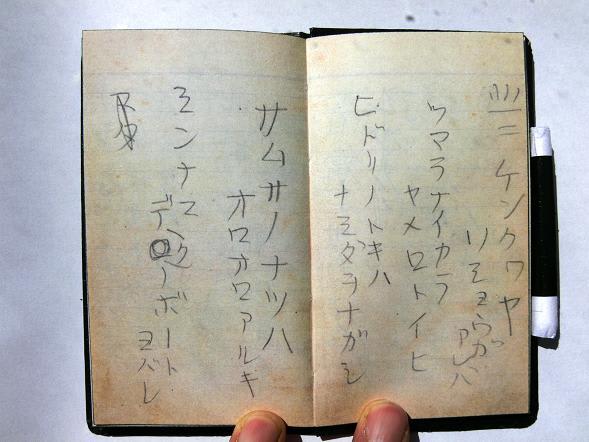 ニケンクワヤ
ソショウガ
アレバ
ツマラナイカラ
ヤメロトイヒ
ヒドリノトキハ
ナミダヲナガシ
サムサノナツハ
オロオロアルキ
ミンナニ
デクノボート
ヨバレ